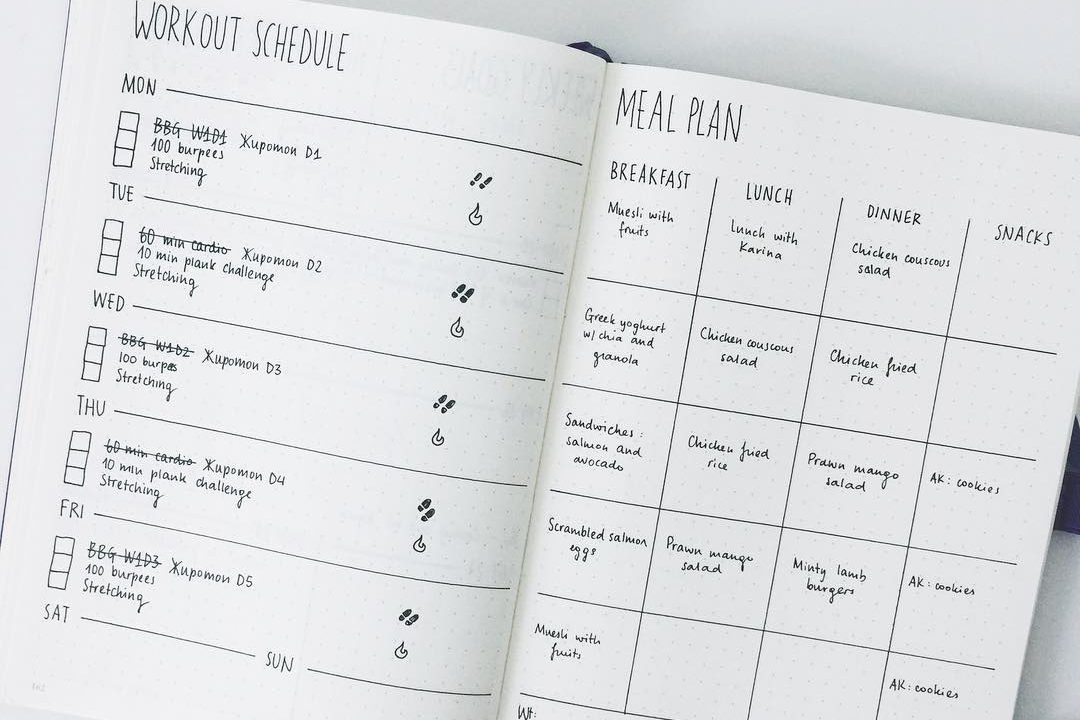 WORKOUT SCHEDULE
MON
BBG W1D1 Жиромоп D1
100 burpees
Stretching
TUE
60 min cardio Жиромоп D2
10 min plank challenge
Stretching
WED
BBG W1D2 Жиромоп D3
100 burpees
Stretching
THU
60 min cardio Жиромоп D4
10 min plank challenge
Stretching
FRI
BBG W1D3 Жиромоп D5
100 burpees
Stretching
SAT
SUN
MEAL PLAN
BREAKFAST
LUNCH
DINNER
SNACKS
Muesli with
fruits
Lunch with
Karina
Chicken couscous
salad
Greek yoghurt
w/ chia and
granola
Chicken couscous
salad
Chicken fried
rice
Sandwiches:
salmon and
avocado
Chicken fried
rice
Prawn mango
salad
AK: cookies
Scrambled salmon
eggs
Prawn mango
salad
Minty lamb
burgers
AK: cookies
Muesli with
fruits
AK: cookies
Wt: